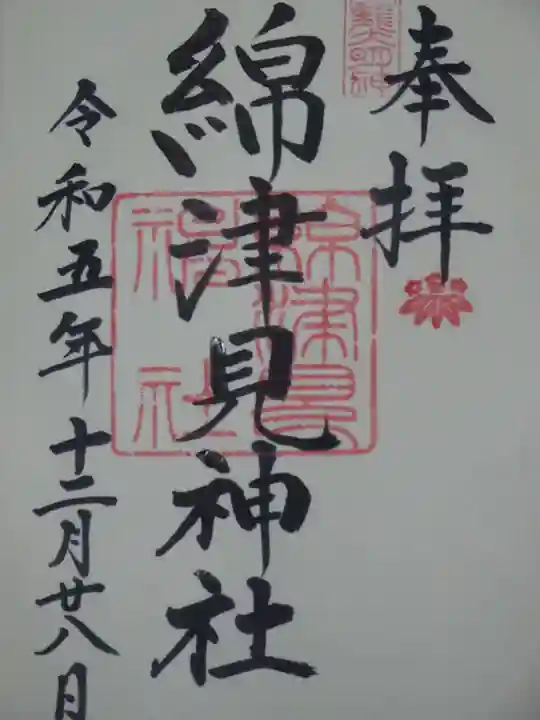 奉拝
綿津見神社
綿津見神社
令和五年十二月廿八日